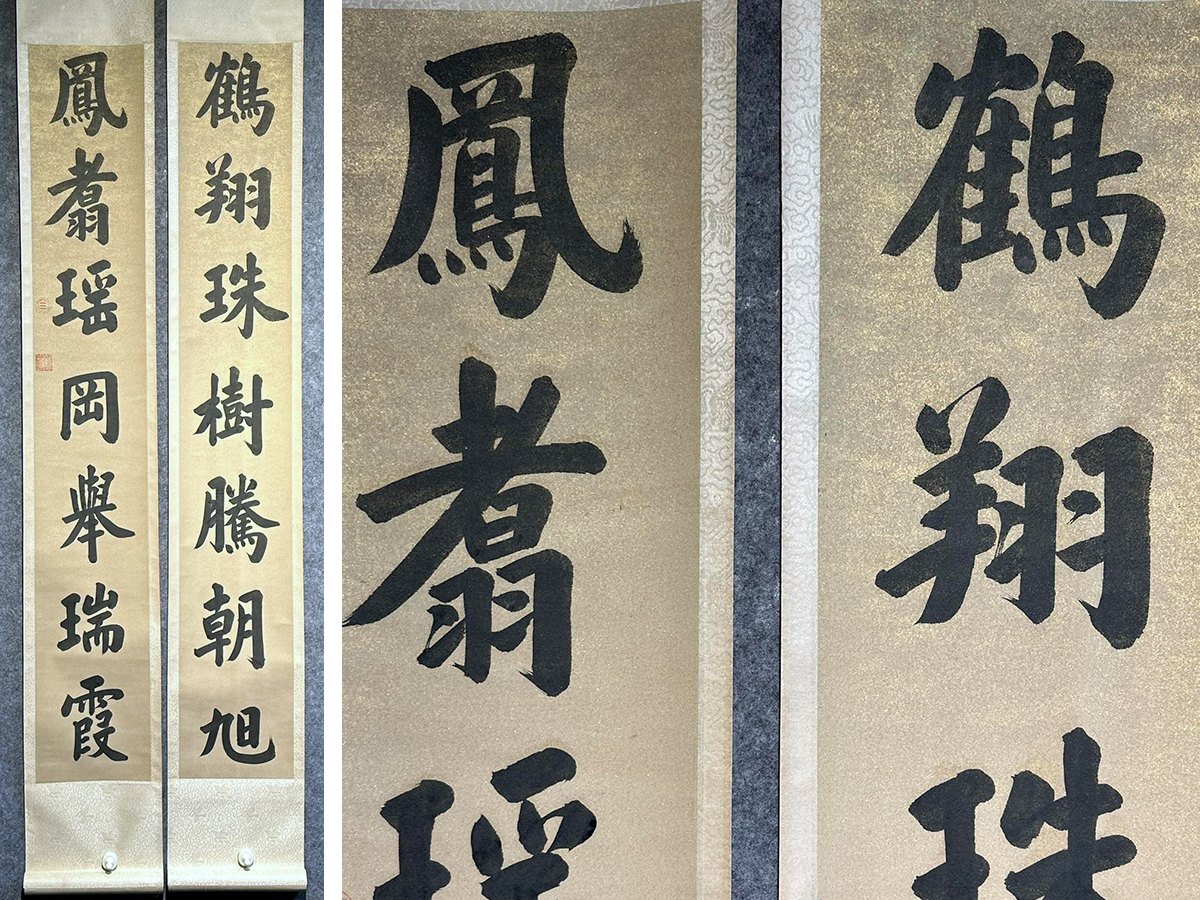 鶴翔珠樹騰朝旭
鳳翥瑶岡舉瑞霞
鶴翔珠
鳳翥瑶